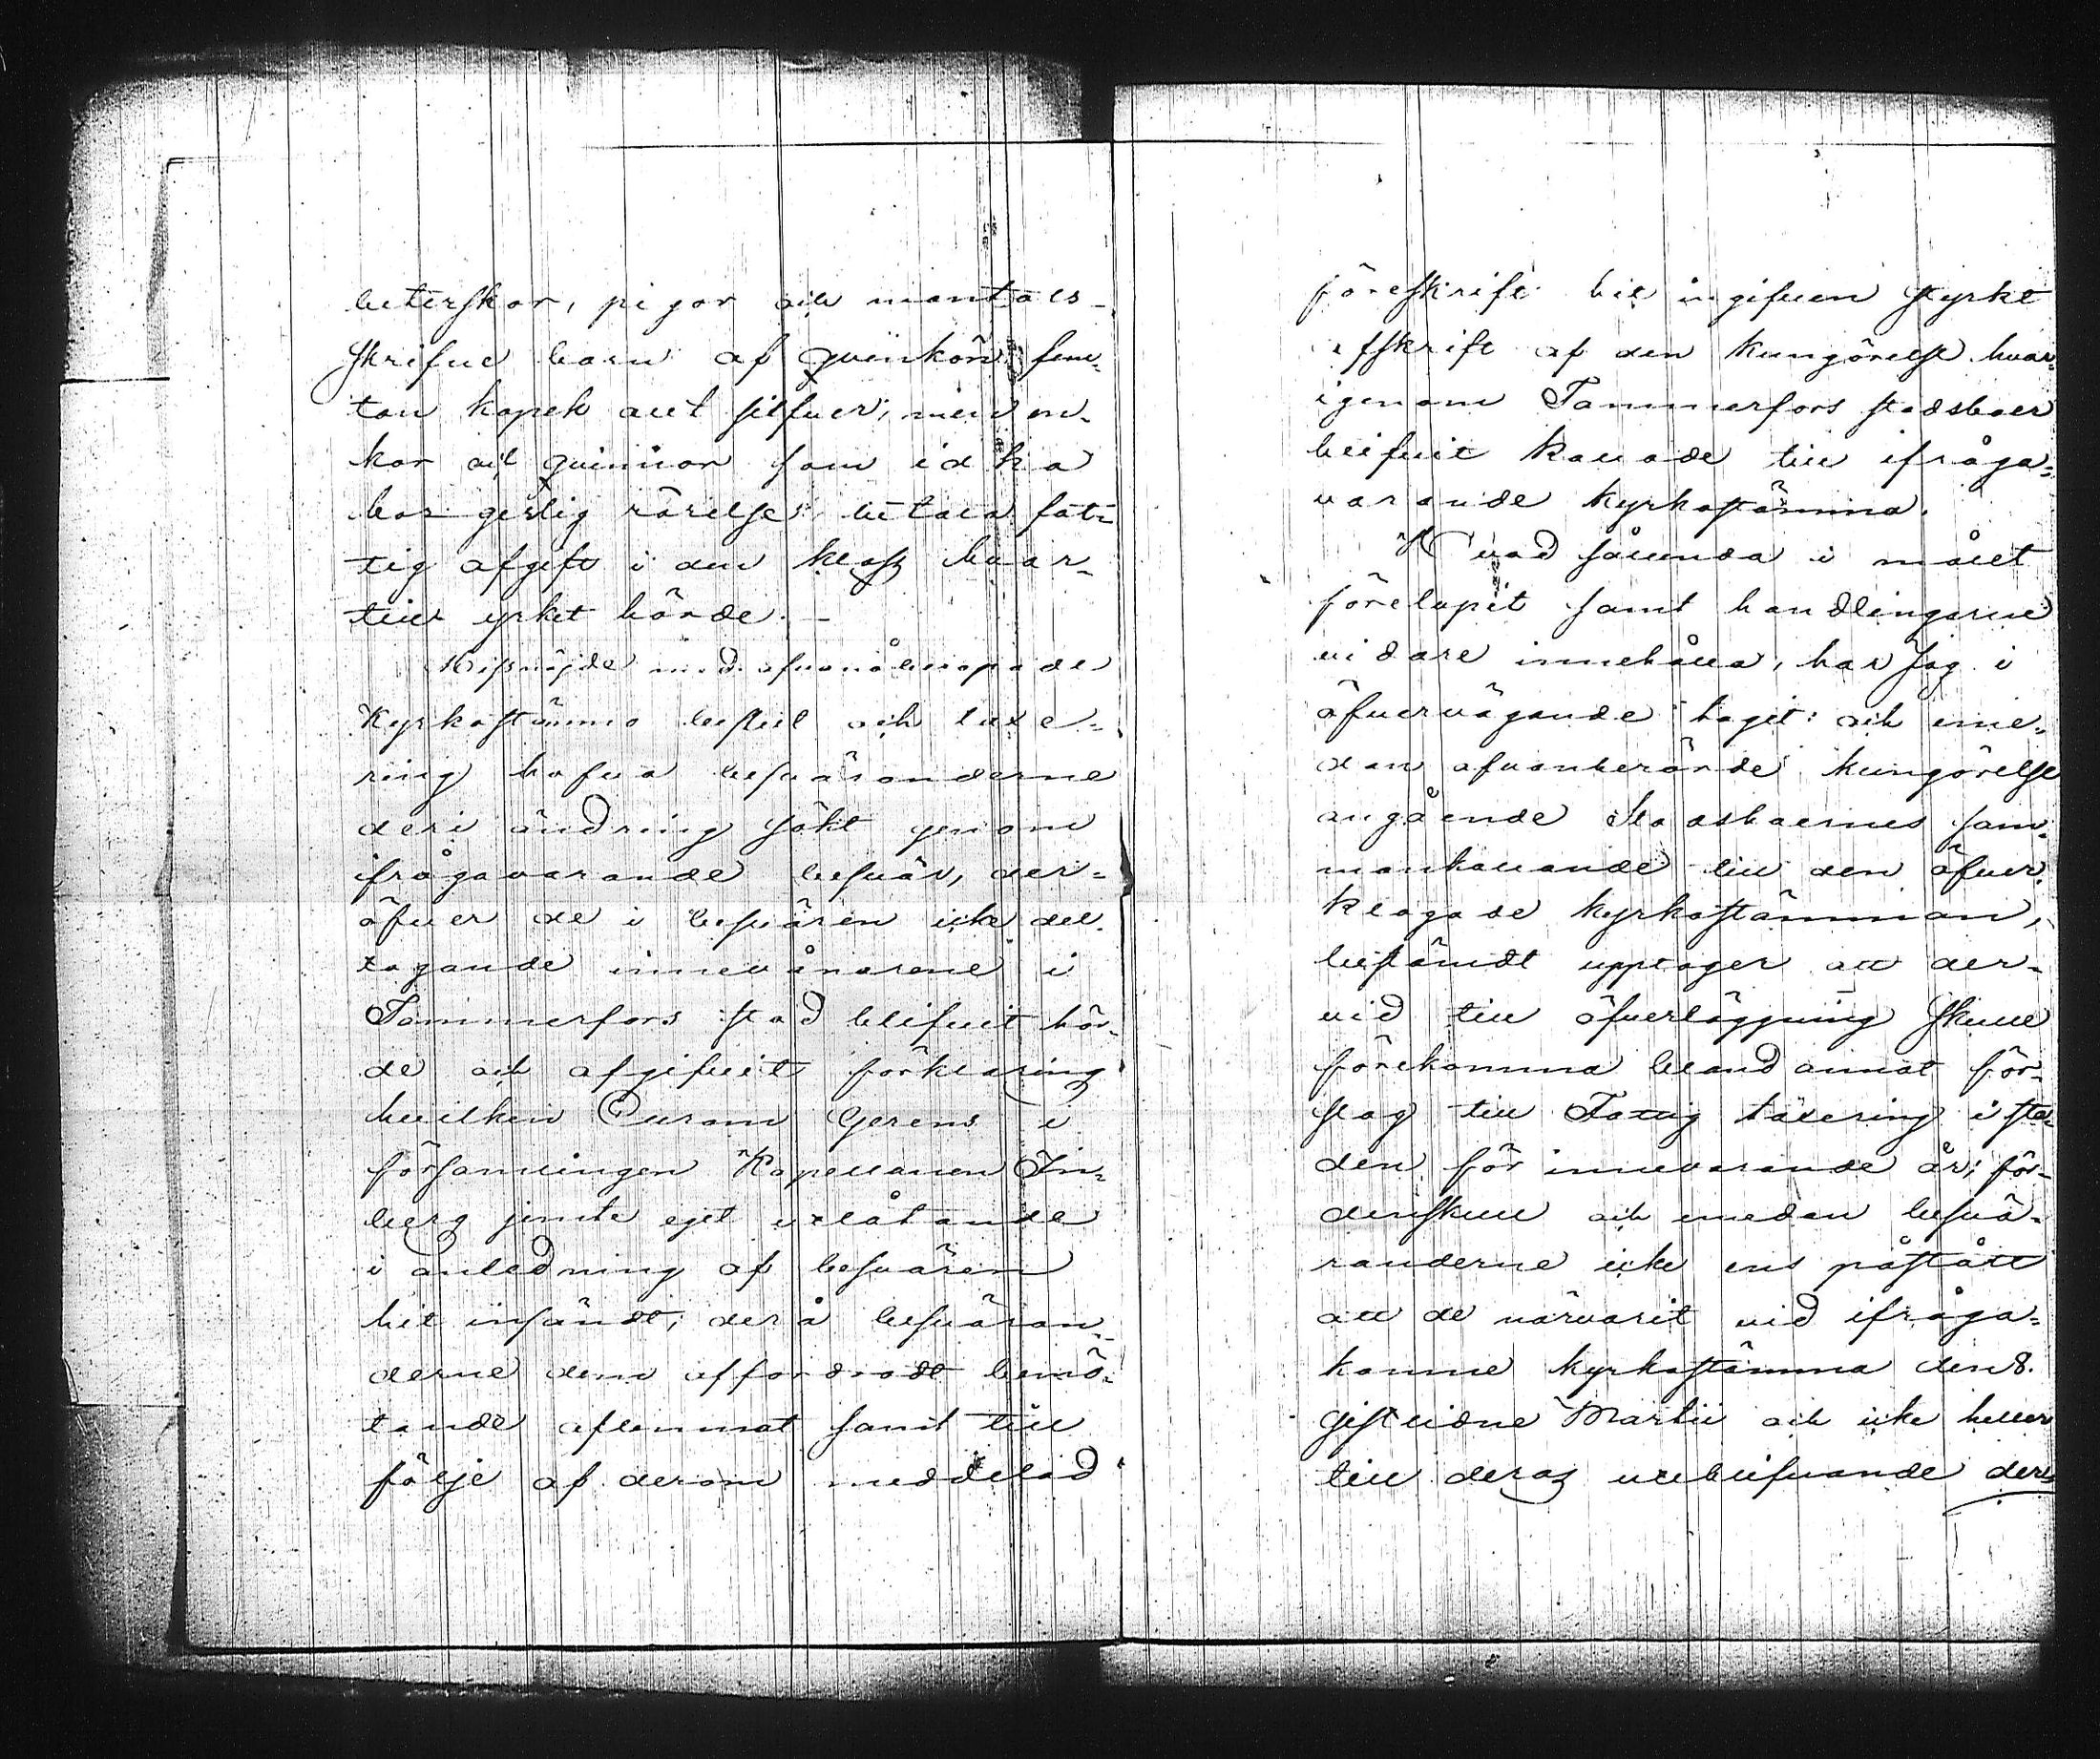 beterskor, pigor och mantals-
skrifne barn af qvinkön fem-
ton kopek allt silfver; men en-
kor och qvinnor som idka
borgerlig rörelse: betala fat-
tig afgift i den klass hvar-
till yrket hörde. —
Missnöjde med ofvanåberopade
Kyrkostämmo beslut och taxe-
ring hafva besväranderne
deri ändring sökt genom
ifrågavarande besvär, der-
öfver de i besvären icke del-
tagande innevånarene i
Tammerfors stad blifvit hör-
de och afgifvit förklaring
hvilken Curam Gerens i
församlingen Kapellanen In-
berg jemte eget utlåtande
i anledning af besvären
hit insändt; derå besväran-
derne dem affordradt bemö-
tande aflemnat samt till
följe af derom meddelad
föreskrift hit ingifven styrkt
afskrift af den kungörelse hvar-
igenom Tammerfors stadsboer
blifvit kallade till ifråga-
varande kyrkostämma.
Hvad sålunda i målet
förelupit samt handlingarne
vidare innehålla, har Jag i
öfvervägande tagit: och eme-
dan ofvanberörde kungörelse
angående Stadsboernes sam-
mankallande till den öfver-
klagade kyrkostämman,
bestämdt upptager att der-
vid till öfverläggning skulle
förekomma bland annat för-
slag till Fattig taxering i sta-
den för innevarande år; för-
denskull och emedan besvä-
randerne icke ens påstått
att de närvarit vid ifråga-
komne kyrkostämma den 8.
sistlidne Martii och icke heller
till deras uteblifvande der-